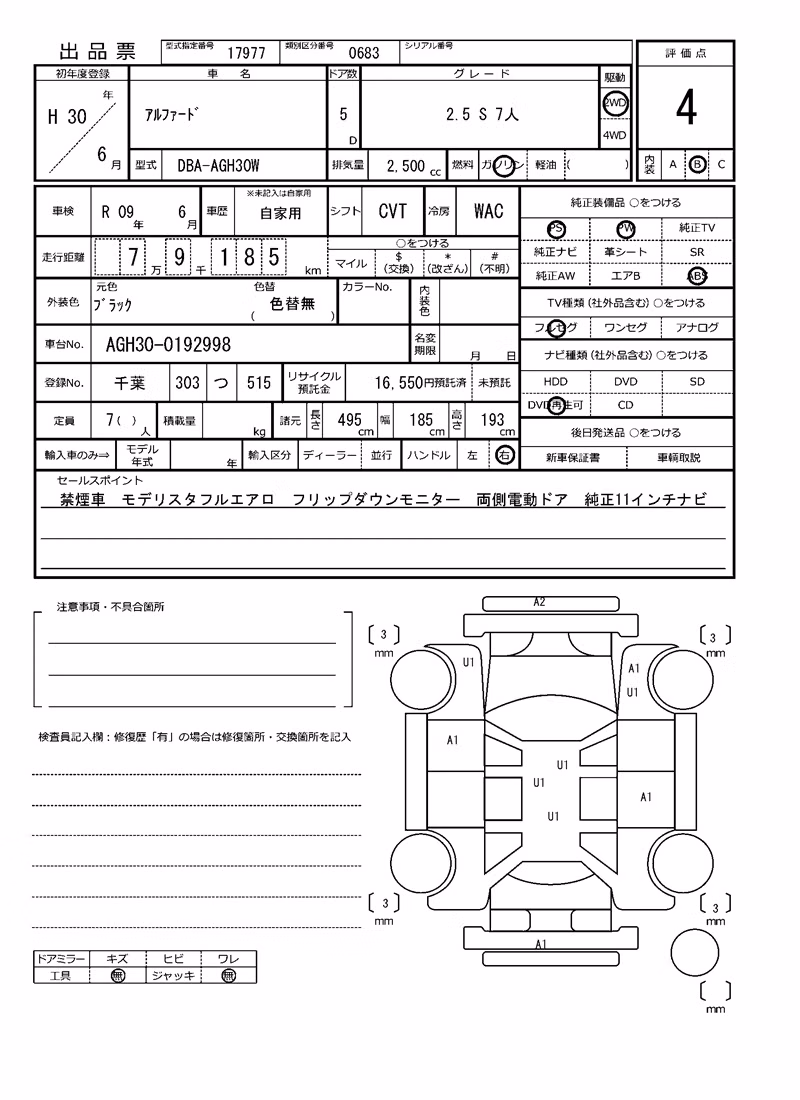 出品票 型式指定番号 17977 類別区分番号 0683 シリアル番号
評価点
4
内装 A B C
初年度登録 車名 ドア数 グレード 駆動
H 30 年 6 月
アルファード 5 D 2.5 S 7人 2WD 4WD
型式 DBA-AGH30W 排気量 2,500 cc 燃料 ガソリン 軽油 ( )
車検 R 09 年 6 月 車歴 ※未記入は自家用 自家用 シフト CVT 冷房 WAC
走行距離 7 万 9 千 1 8 5 km ○をつける
マイル $(交換) *(改ざん) #(不明)
外装色 元色 ブラック 色替 ( 色替無 ) カラーNo. 内装色
車台No. AGH30-0192998 名変期限 月 日
登録No. 千葉 303 つ 515 リサイクル預託金 16,550円預託済 未預託
定員 7( )人 積載量 kg 諸元 長さ 495 cm 幅 185 cm 高さ 193 cm
輸入車のみ⇒ モデル年式 年 輸入区分 ディーラー 並行 ハンドル 左 右
純正装備品 ○をつける
PS PW 純正TV
純正ナビ 革シート SR
純正AW エアB ABS
TV種類(社外品含む)○をつける
フルセグ ワンセグ アナログ
ナビ種類(社外品含む)○をつける
HDD DVD SD
DVD再生可 CD
後日発送品 ○をつける
新車保証書 車輌取説
セールスポイント
禁煙車 モデリスタフルエアロ フリップダウンモニター 両側電動ドア 純正11インチナビ
注意事項・不具合箇所
検査員記入欄:修復歴「有」の場合は修復箇所・交換箇所を記入
ドアミラー キズ ヒビ ワレ
工具 無 ジャッキ 無
A2
3 mm
3 mm
U1
A1
U1
A1
U1
U1
A1
U1
3 mm
3 mm
A1
mm